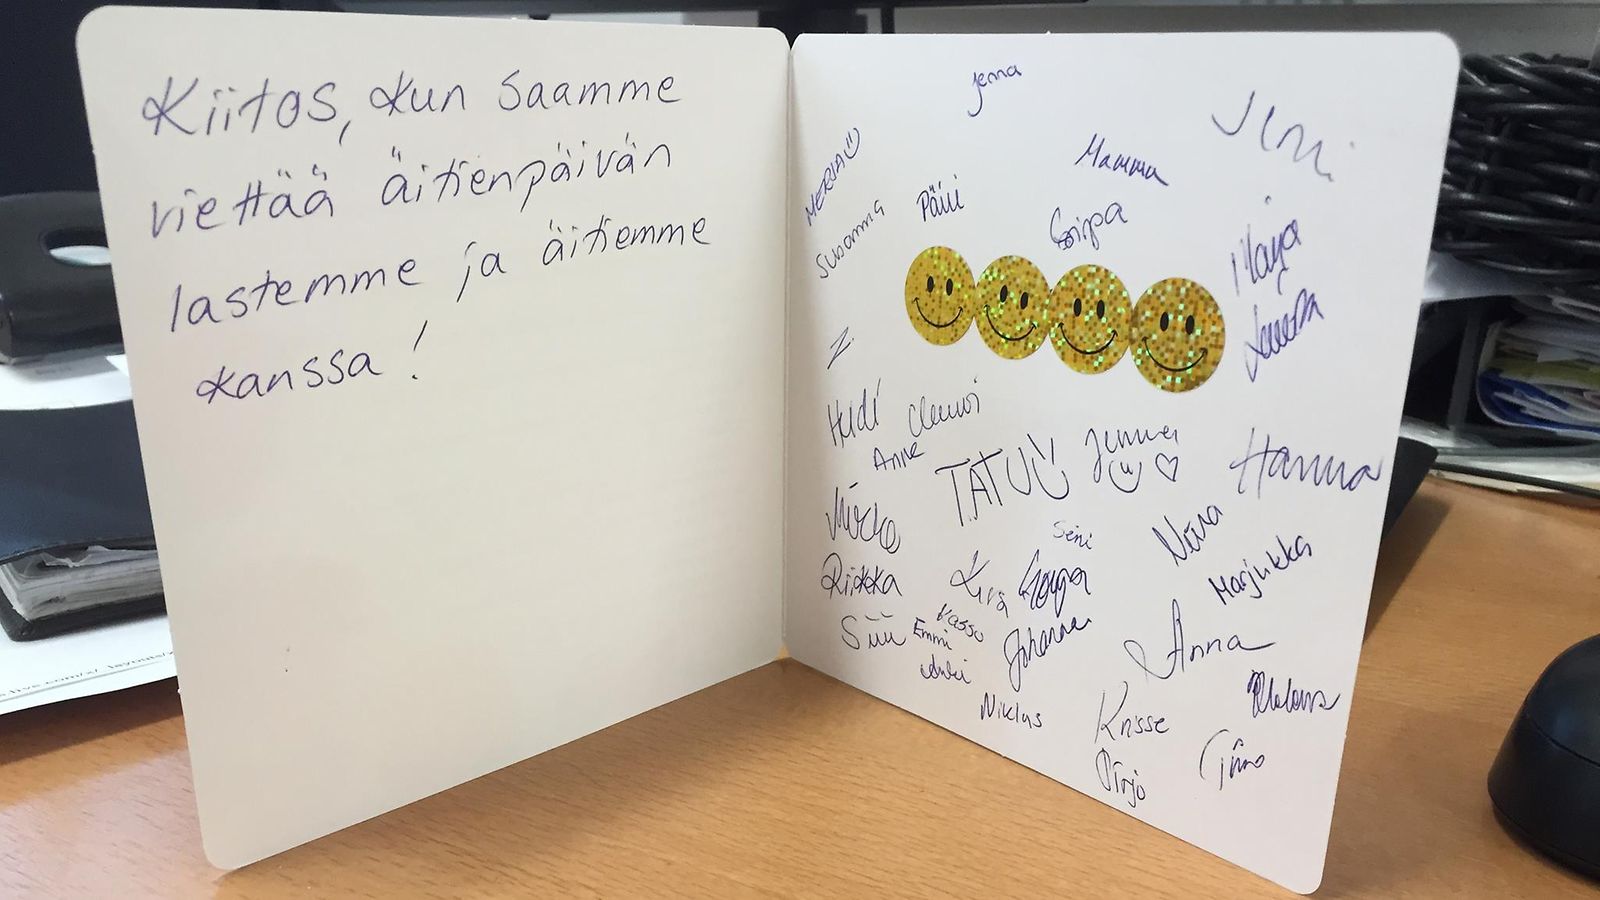 Kiitos, kun saamme
viettää äitienpäivän
lastemme ja äitiemme
kanssa!
Jenna
Jeni
MERJA
Mamma
Susanna
Päivi
Sirpa
Maija
N.
Heidi
Anne
TATU
Jenna
Hanna
Mirka
Seni
Niina
Riikka
Kira
Marjukka
Siiu
Emmi
Kassu
Johanna
Anna
Niklas
Krisse
Timo
Pirjo